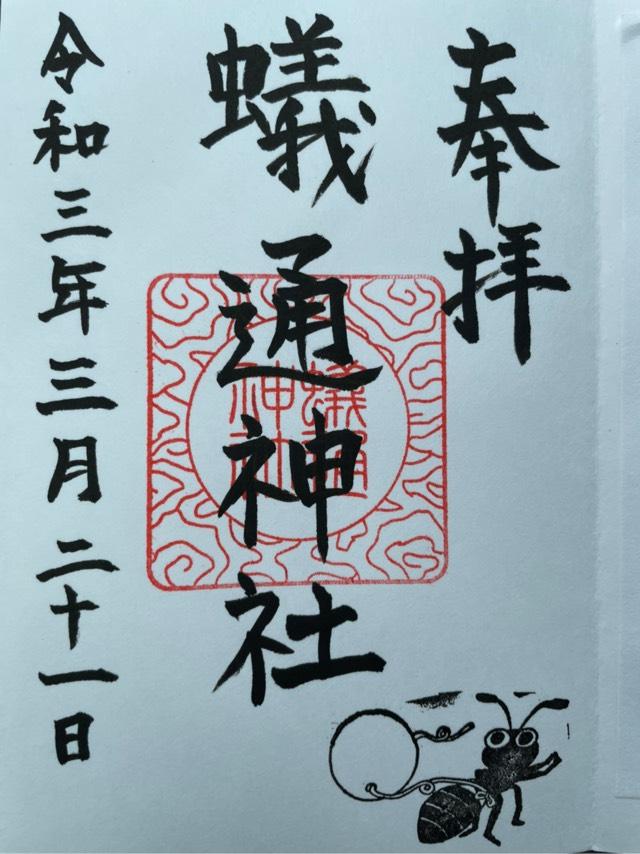 奉拝
蟻通神社
蟻通
神社
令和三年三月二十一日